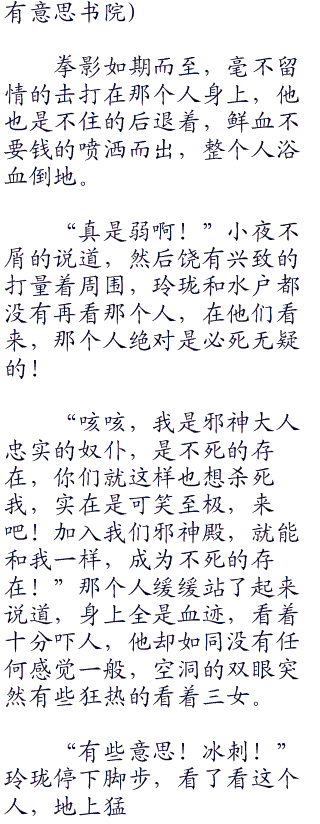 有意思书院）
拳影如期而至，毫不留
情的击打在那个人身上，他
也是不住的后退着，鲜血不
要钱的喷洒而出，整个人浴
血倒地。
“真是弱啊！”小夜不
屑的说道，然后饶有兴致的
打量着周围，玲珑和水户都
没有再看那个人，在他们看
来，那个人绝对是必死无疑
的！
“咳咳，我是邪神大人
忠实的奴仆，是不死的存
在，你们就这样也想杀死
我，实在是可笑至极，来
吧！加入我们邪神殿，就能
和我一样，成为不死的存
在！”那个人缓缓站了起来
说道，身上全是血迹，看着
十分吓人，他却如同没有任
何感觉一般，空洞的双眼突
然有些狂热的看着三女。
“有些意思！冰刺！”
玲珑停下脚步，看了看这个
人，地上猛